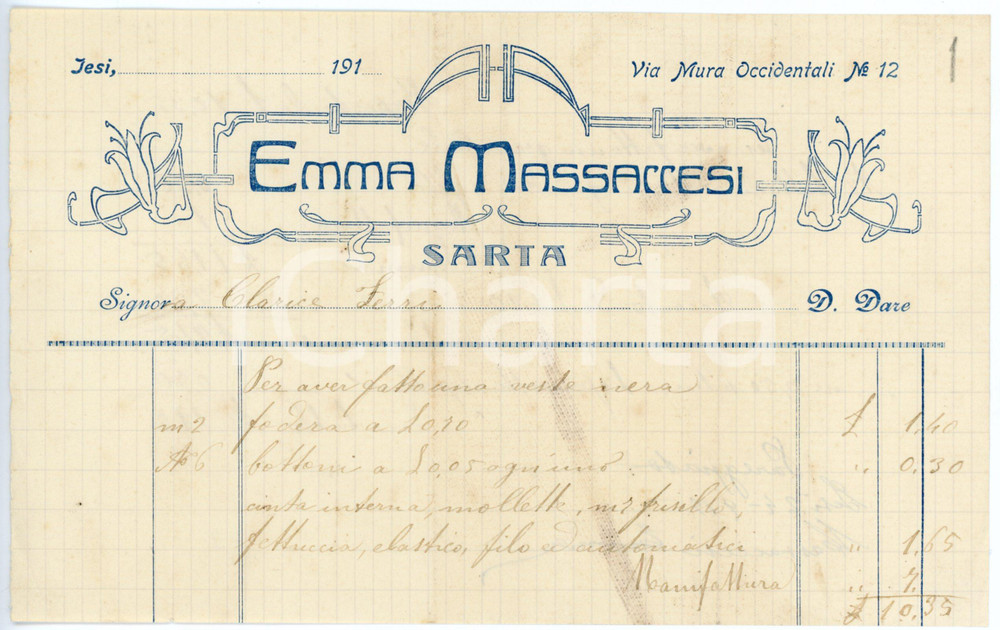 Jesi, 191
Via Mura Occidentali № 12
1
EMMA MASSACCESI
SARTA
Signora Clarice Ferri D. Dare
Per aver fatto una veste nera
m 2 fodera a £0,70 £ 1,40
No 6 bottoni a £0,05 ogn'uno. " 0,30
cinta interna, mollette, m 2 frisillo,
fettuccia, elastico, filo e automatici " 1,65
Manifattura " 7,
£ 10,35
iCharta